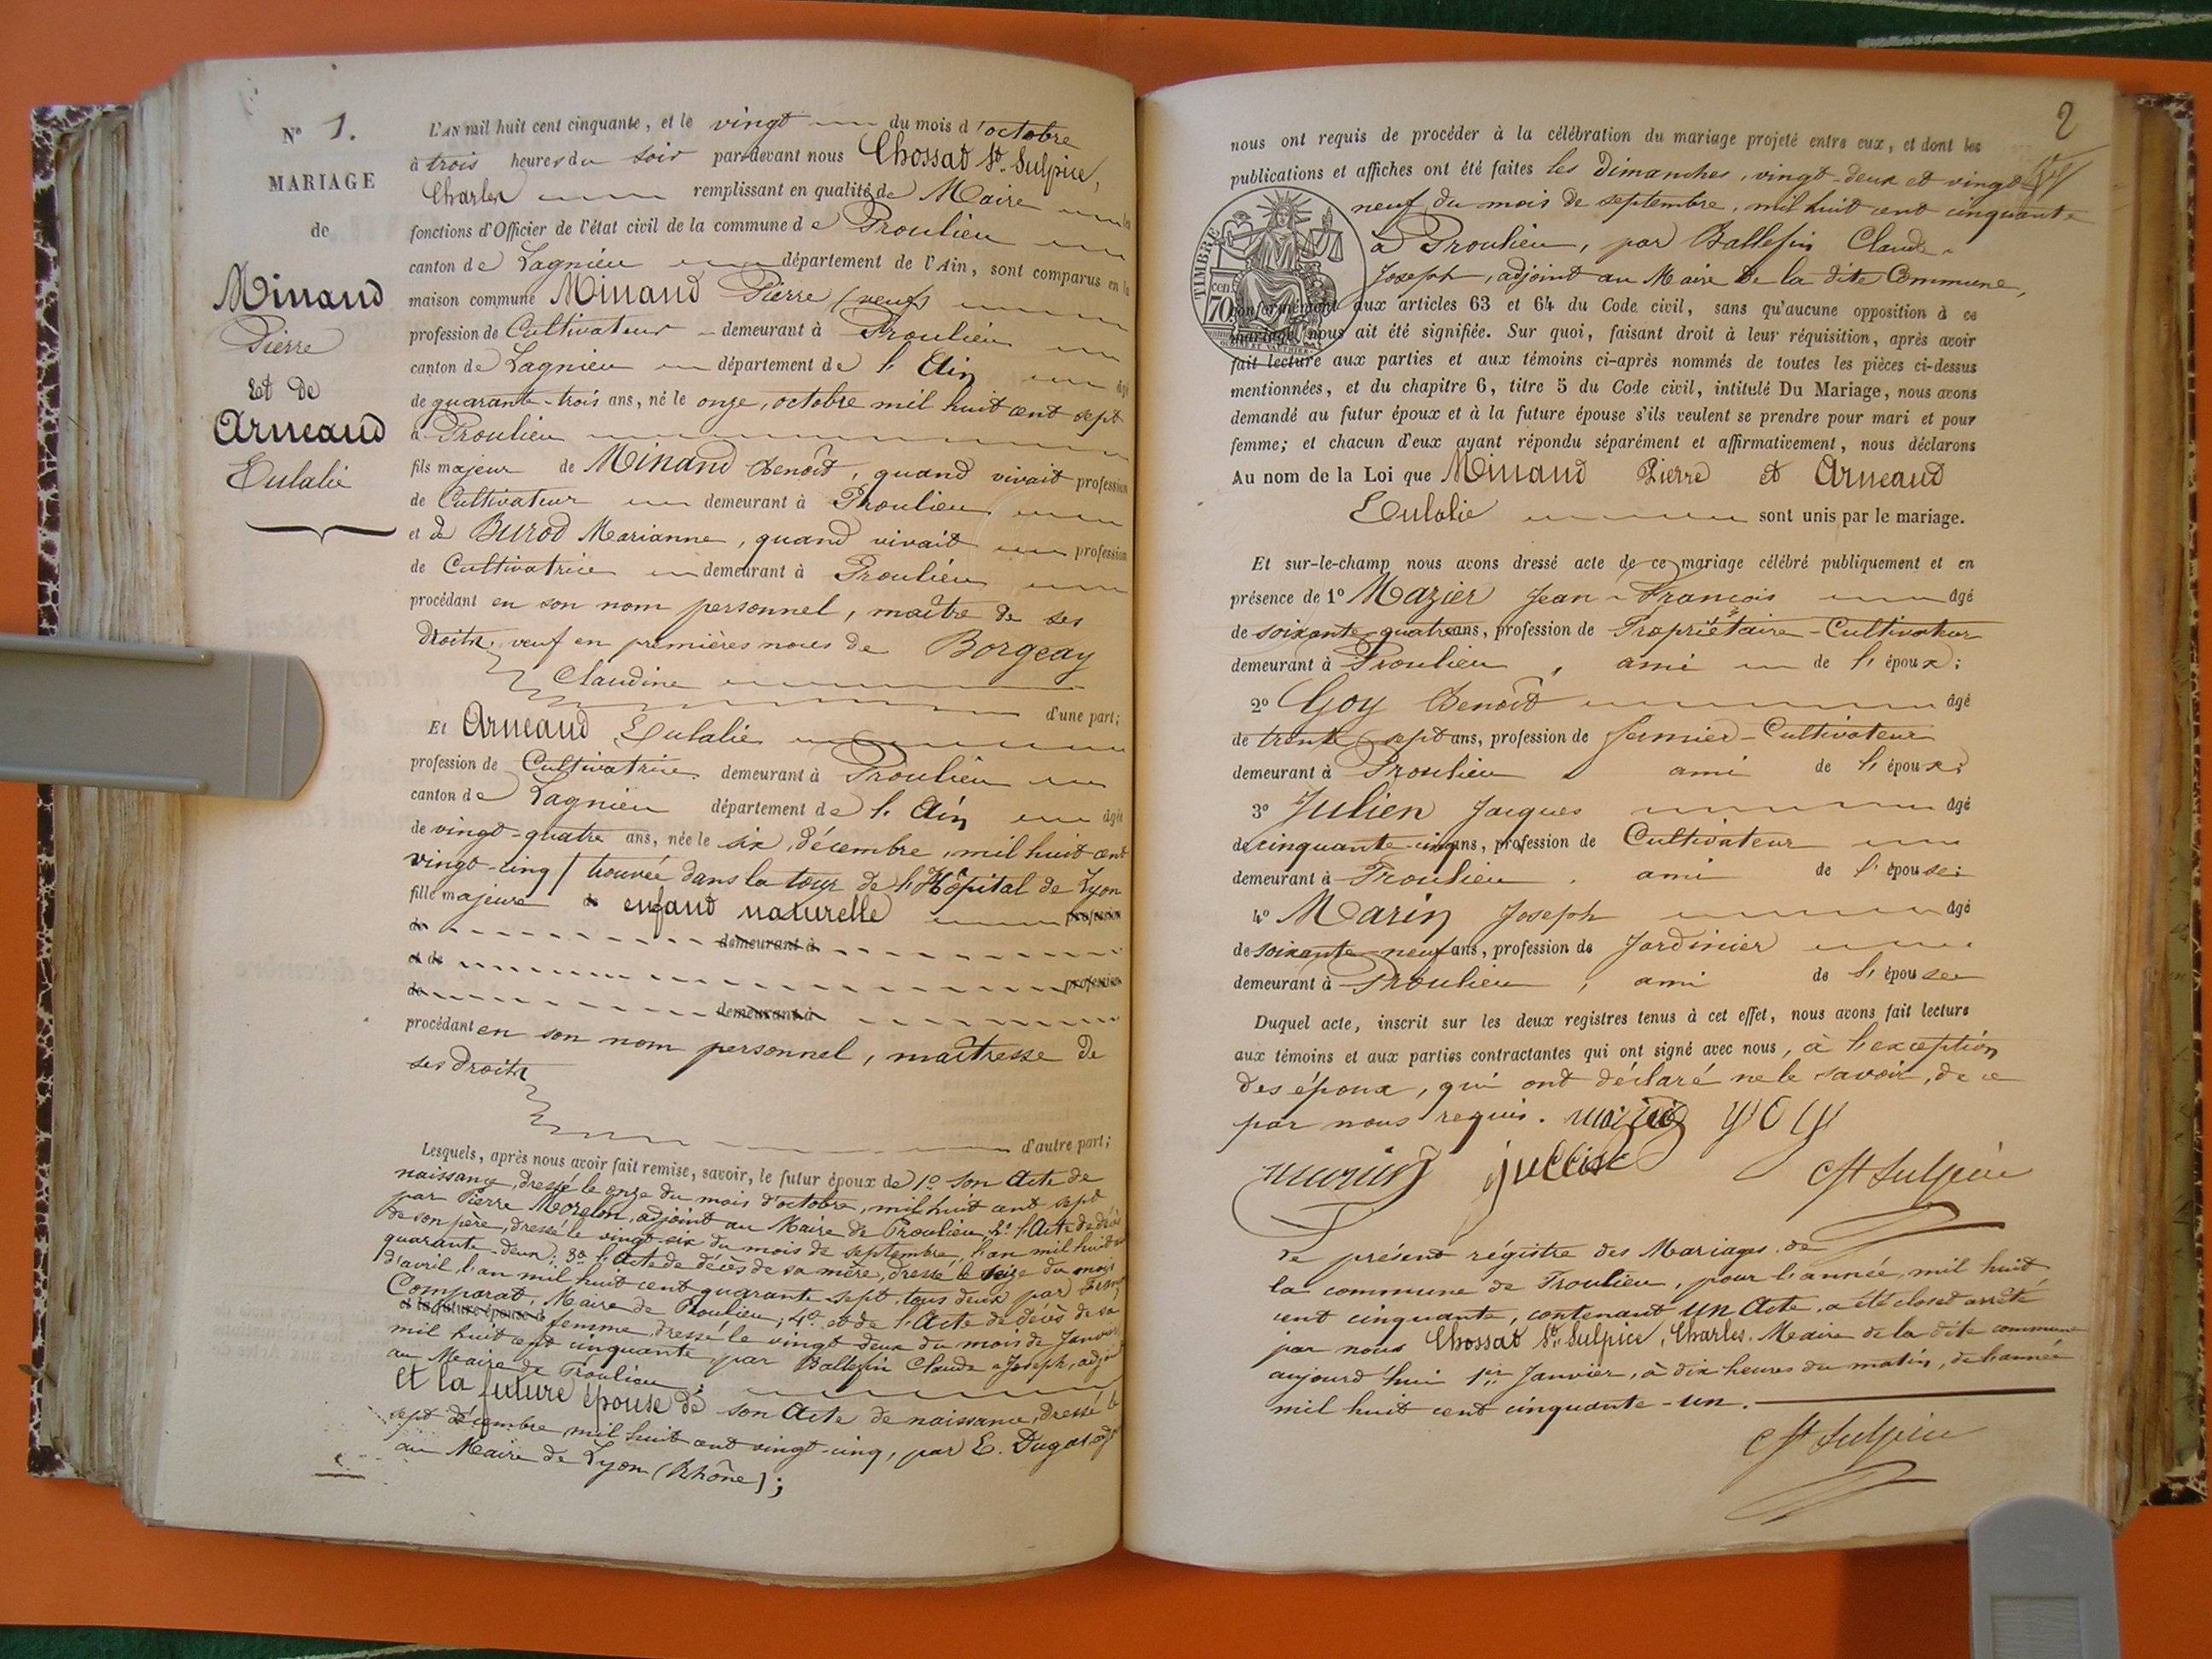 N° 1.
MARIAGE
de
Minand
Pierre
Et de
Arneaud
Eulalie
L'AN mil huit cent cinquante, et le vingt du mois d'octobre
à trois heures du soir par-devant nous Chossat St. Sulpice,
Charles remplissant en qualité de Maire les
fonctions d'Officier de l'état civil de la commune de Proulieu
canton de Lagnieu département de l'Ain, sont comparus en la
maison commune Minand Pierre (veuf)
profession de Cultivateur demeurant à Proulieu
canton de Lagnieu département de l'Ain âgé
de quarante-trois ans, né le onze, octobre mil huit cent sept
à Proulieu
fils majeur de Minand Benoît, quand vivait profession
de Cultivateur demeurant à Proulieu
et de Burod Marianne, quand vivait profession
de Cultivatrice demeurant à Proulieu
procédant en son nom personnel, maître de ses
droits, veuf en premières noces de Borgeay
Claudine
d'une part;
Et Arneaud Eulalie
profession de Cultivatrice demeurant à Proulieu
canton de Lagnieu département de l'Ain âgée
de vingt-quatre ans, née le six, décembre, mil huit cent
vingt-cinq / trouvée dans la tour de l'Hôpital de Lyon
fille majeure de enfant naturelle profession
de demeurant à
et de profession
de demeurant à
procédant en son nom personnel, maîtresse de
ses droits
d'autre part;
Lesquels, après nous avoir fait remise, savoir, le futur époux de 1° son Acte de
naissance, dressé le onze du mois d'octobre, mil huit cent sept
par Pierre Morelon, adjoint au Maire de Proulieu, 2° l'Acte de décès
de son père, dressé le vingt-six du mois de septembre, l'an mil huit cent
quarante-deux; 3° l'Acte de décès de sa mère, dressé le seize du mois
d'avril, l'an mil huit cent quarante-sept, tous deux par
Comparat, Maire de Proulieu; 4° et de l'Acte de décès de sa
et la future épouse de
femme, dressé le vingt deux du mois de Janvier
mil huit cent cinquante, par Ballefin Claude-Joseph, adjoint
au Maire de Proulieu;
et la future épouse de son Acte de naissance, dressé le
sept décembre mil huit cent vingt-cinq, par E. Dugas adjt
au Maire de Lyon (Rhône);
2
nous ont requis de procéder à la célébration du mariage projeté entre eux, et dont les
publications et affiches ont été faites les Dimanches, vingt-deux et vingt
neuf du mois de septembre, mil huit cent cinquante
à Proulieu, par Ballefin Claude-
Joseph, adjoint au Maire de la dite Commune,
TIMBRE
70 cen
conformément aux articles 63 et 64 du Code civil, sans qu'aucune opposition à ce
mariage nous ait été signifiée. Sur quoi, faisant droit à leur réquisition, après avoir
fait lecture aux parties et aux témoins ci-après nommés de toutes les pièces ci-dessus
mentionnées, et du chapitre 6, titre 5 du Code civil, intitulé Du Mariage, nous avons
demandé au futur époux et à la future épouse s'ils veulent se prendre pour mari et pour
femme; et chacun d'eux ayant répondu séparément et affirmativement, nous déclarons
Au nom de la Loi que Minand Pierre et Arneaud
Eulalie sont unis par le mariage.
Et sur-le-champ nous avons dressé acte de ce mariage célébré publiquement et en
présence de 1° Mazier Jean-François âgé
de soixante-quatre ans, profession de Propriétaire-Cultivateur
demeurant à Proulieu, ami de l'époux;
2° Goy Benoît âgé
de trente-sept ans, profession de fermier-Cultivateur
demeurant à Proulieu ami de l'époux;
3° Julien Jacques âgé
de cinquante-cinq ans, profession de Cultivateur
demeurant à Proulieu, ami de l'épouse;
4° Marin Joseph âgé
de soixante-neuf ans, profession de Jardinier
demeurant à Proulieu, ami de l'épouse
Duquel acte, inscrit sur les deux registres tenus à cet effet, nous avons fait lecture
aux témoins et aux parties contractantes qui ont signé avec nous, à l'exception
des époux, qui ont déclaré ne le savoir, de ce
par nous requis. goy
Ct St Sulpice
Le présent régistre des Mariages de
la commune de Proulieu, pour l'année, mil huit
cent cinquante, contenant un Acte, a été clos et arrêté
par nous Chossat St. Sulpice, Charles, Maire de la dite commune
aujourd'hui 1er Janvier, à dix heures du matin, de l'année
mil huit cent cinquante-un.
Ct St Sulpice